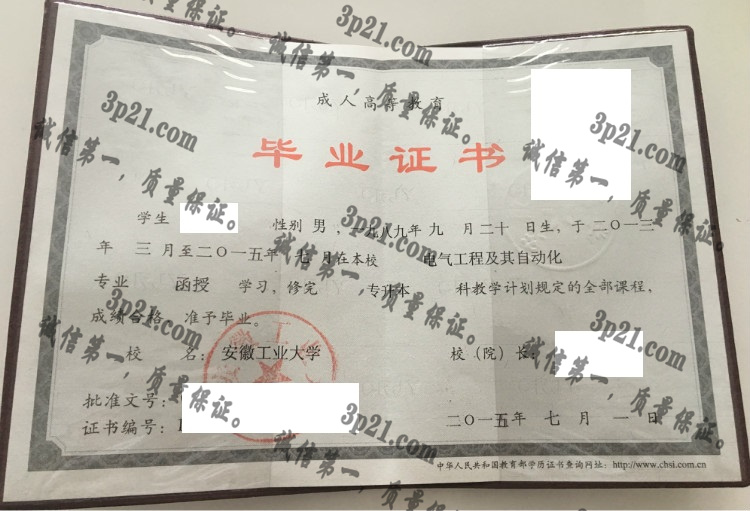 成人高等教育
毕业证书
学生 性别 男，一九八九年 九 月 二十 日生，于 二〇一三
年 三 月至二〇一五年 七 月在本校 电气工程及其自动化
专业 函授 学习，修完 专升本 科教学计划规定的全部课程，
成绩合格，准予毕业。
校 名：安徽工业大学 校（院）长：
批准文号：
证书编号：1
二〇一五年 七 月 一 日
中华人民共和国教育部学历证书查询网址：http://www.chsi.com.cn
3p21.com
诚信第一，质量保证。
3p21.com
诚信第一，质量保证。
3p21.com
诚信第一，质量保证。
3p21.com
诚信第一，质量保证。
3p21.com
诚信第一，质量保证。
3p21.com
诚信第一，质量保证。
3p21.com
诚信第一，质量保证。